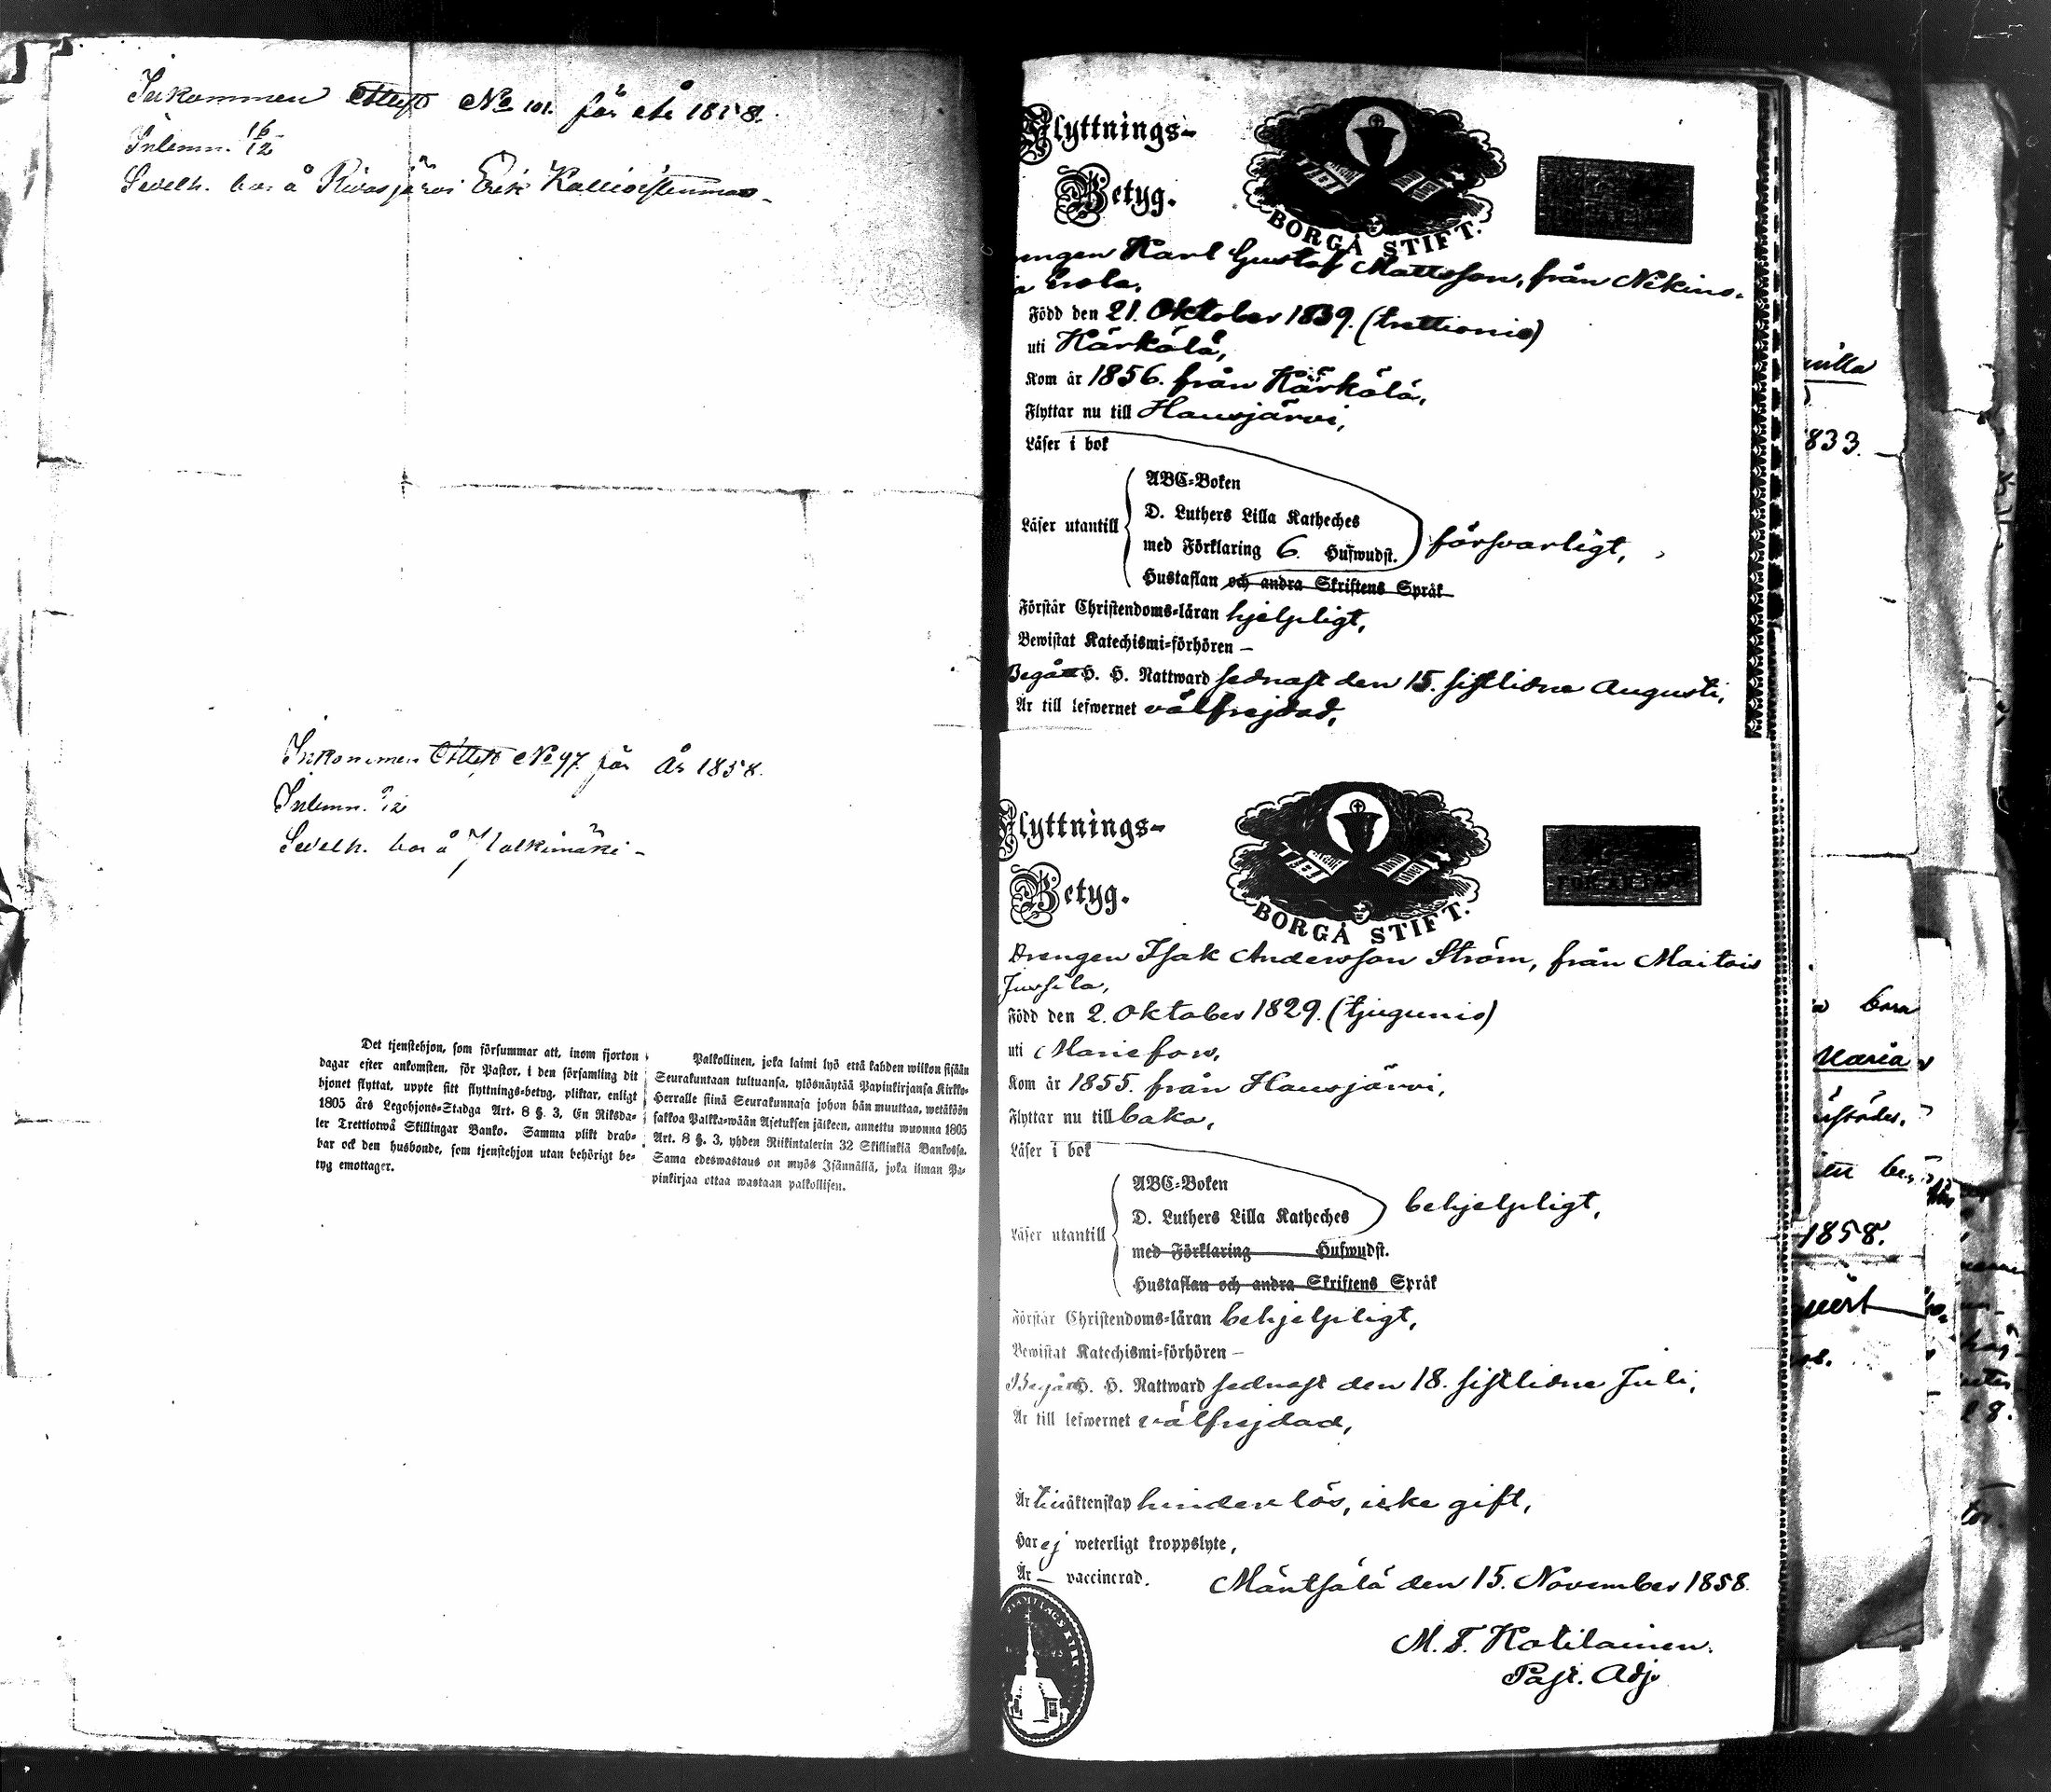 Inkommen Attest No 101. för år 1858.
Inlemn. 16/12
Sedelh. bor å Rivasjärvi Erik
Inkommen Attest No 97. för år 1858.
Inlemn. 9/12
Sedelh. bor å
Det tjenstehjon, som försummar att, inom fjorton
dagar efter ankomsten, för Pastor, i den församling dit
hjonet flyttat, uppte sitt flyttnings-betyg, pliktar, enligt
1805 års Legohjons-Stadga Art. 8 §. 3, En Riksda-
ler Trettiotwå Skillingar Banko. Samma plikt drab-
bar ock den husbonde, som tjenstehjon utan behörigt be-
tyg emottager.
Palkollinen, joka laimi lyö että kahden wiikon sisään
Seurakuntaan tultuansa, ylösnäytää Papinkirjansa Kirkko-
Herralle siinä Seurakunnasa johon hän muuttaa, wetäköön
sakkoa Palkka-wään Asetuksen jälkeen, annettu wuonna 1805
Art. 8 §. 3, yhden Riikintalerin 32 Skillinkiä Bankossa.
Sama edeswastaus on myös Isännällä, joka ilman Pa-
pinkirjaa ottaa wastaan palkollisen.
Flyttnings-
Betyg.
BORGÅ STIFT.
Karl Gustaf Mattsson, från Nikins.
Född den 21. Oktober 1839. (trettionio)
uti Härkälä,
Kom år 1856. från Kärkälä,
Flyttar nu till Hausjärvi,
Läser i bok
ABC-Boken
D. Luthers Lilla Katheches
Läser utantill
med Förklaring 6. Hufwudst.
försvarligt,
Hustaflan och andra Skriftens Språk
Förstår Christendoms-läran hjelpligt,
Bewistat Katechismi-förhören —
Begått H. H. Nattward sednast den 15. sistlidne Augusti,
Är till lefwernet välfrejdad,
Flyttnings-
Betyg.
BORGÅ STIFT.
Drengen Isak Andersson Ström, från Maitois
Jussila,
Född den 2. Oktober 1829. (tjugunio)
uti Mariefors,
Kom år 1855. från Hausjärvi,
Flyttar nu till baka,
Läser i bok
ABC-Boken
behjelpligt,
D. Luthers Lilla Katheches
Läser utantill
med Förklaring Hufwudst.
Hustaflan och andra Skriftens Språk
Förstår Christendoms-läran behjelpligt,
Bewistat Katechismi-förhören —
Begått H. H. Nattward sednast den 18. sistlidne Juli,
Är till lefwernet välfrejdad,
Är till äktenskap hinderslös, icke gift,
Har ej weterligt kroppslyte,
Är — vaccinerad.
Mäntsälä den 15. November 1858.
M. F. Kotilainen.
Past. Adj.
1833.
bara
Maria
1858.